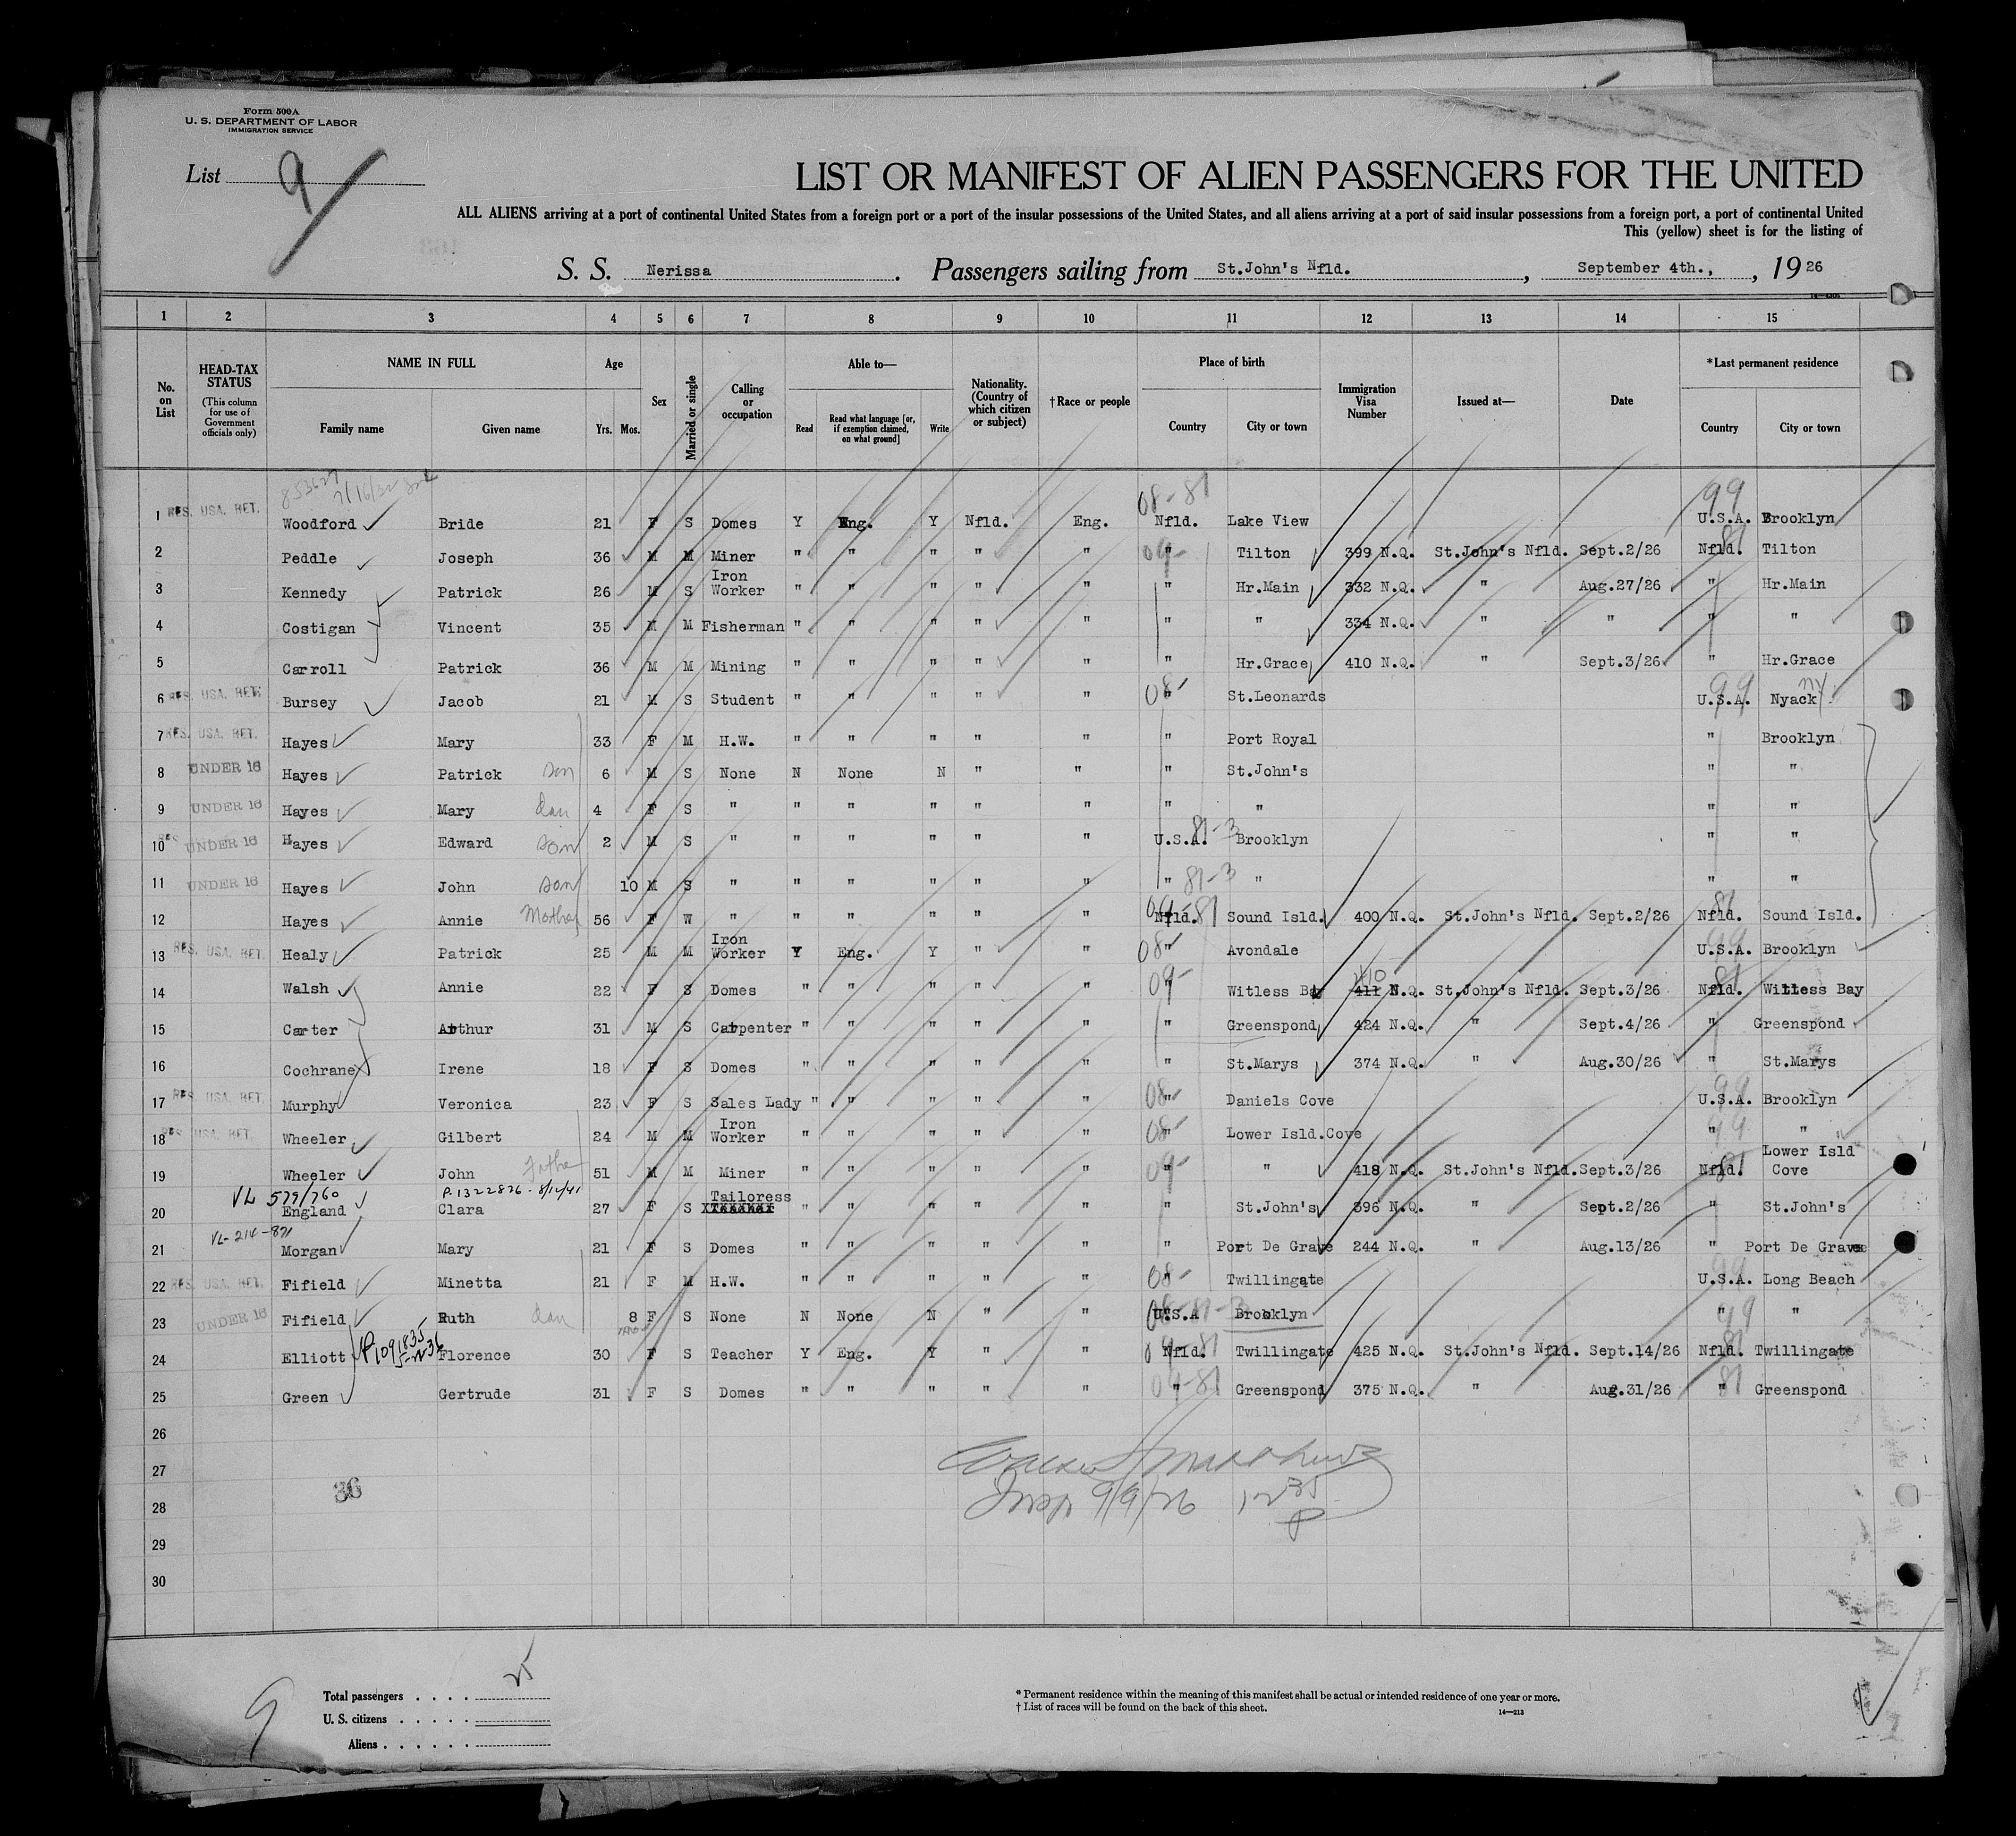 Form 500A
U. S. DEPARTMENT OF LABOR
IMMIGRATION SERVICE
List 9
LIST OR MANIFEST OF ALIEN PASSENGERS FOR THE UNITED
ALL ALIENS arriving at a port of continental United States from a foreign port or a port of the insular possessions of the United States, and all aliens arriving at a port of said insular possessions from a foreign port, a port of continental United
This (yellow) sheet is for the listing of
S. S. Nerissa. Passengers sailing from St.John's Nfld., September 4th., , 19 26
1 2 3 4 5 6 7 8 9 10 11 12 13 14 15
No. on List HEAD-TAX STATUS (This column for use of Government officials only) NAME IN FULL Family name Given name Age Yrs. Mos. Sex Married or single Calling or occupation Able to— Read Read what language [or, if exemption claimed, on what ground] Write Nationality. (Country of which citizen or subject) †Race or people Place of birth Country City or town Immigration Visa Number Issued at— Date *Last permanent residence Country City or town
853627 7/16/32 08-81 99
1 RES. USA. RET. Woodford Bride 21 F S Domes Y Eng. Y Nfld. Eng. Nfld. Lake View U.S.A. Brooklyn
2 Peddle Joseph 36 M M Miner " " " " " 09- " Tilton 399 N.Q. St.John's Nfld. Sept.2/26 81 Nfld. Tilton
3 Kennedy Patrick 26 M S Iron Worker " " " " " " Hr.Main 332 N.Q. " Aug.27/26 " Hr.Main
4 Costigan Vincent 35 M M Fisherman " " " " " " " 334 N.Q. " " " "
5 Carroll Patrick 36 M M Mining " " " " " " Hr.Grace 410 N.Q. " Sept.3/26 " Hr.Grace
6 RES. USA. RET. Bursey Jacob 21 M S Student " " " " " 08- " St.Leonards 99 U.S.A. Nyack NY
7 RES. USA. RET. Hayes Mary 33 F M H.W. " " " " " " Port Royal " Brooklyn
8 UNDER 16 Hayes Patrick son 6 M S None N None N " " " St.John's " "
9 UNDER 16 Hayes Mary dau 4 F S " " " " " " " " " "
10 RES UNDER 16 Hayes Edward son 2 M S " " " " " " U.S.A. 81-3 Brooklyn " "
11 UNDER 16 Hayes John son 10 M S " " " " " " " 81-3 " " "
12 Hayes Annie Mother 56 F W " " " " " " 09-81 Nfld. Sound Isld. 400 N.Q. St.John's Nfld. Sept.2/26 81 Nfld. Sound Isld.
13 RES. USA. RET. Healy Patrick 25 M M Iron Worker Y Eng. Y " " 08- " Avondale 99 U.S.A. Brooklyn
14 Walsh Annie 22 F S Domes " " " " " 09- " Witless Bay 410 411 N.Q. St.John's Nfld. Sept.3/26 81 Nfld. Witless Bay
15 Carter Arthur 31 M S Carpenter " " " " " " Greenspond 424 N.Q. " Sept.4/26 " Greenspond
16 Cochrane Irene 18 F S Domes " " " " " " St.Marys 374 N.Q. " Aug.30/26 " St.Marys
17 RES. USA. RET. Murphy Veronica 23 F S Sales Lady " " " " " 08- " Daniels Cove 99 U.S.A. Brooklyn
18 RES. USA. RET. Wheeler Gilbert 24 M M Iron Worker " " " " " 08- Lower Isld.Cove 99 " "
19 Wheeler John Father 51 M M Miner " " " " " 09- " 418 N.Q. St.John's Nfld. Sept.3/26 81 Nfld. Lower Isld Cove
VL 579/760 P.1322826-8/12/41
20 England Clara 27 F S Tailoress " " " " " " St.John's 396 N.Q. " Sept.2/26 " St.John's
VL-214-871
21 Morgan Mary 21 F S Domes " " " " " " Port De Grave 244 N.Q. " Aug.13/26 " Port De Grave
22 RES. USA. RET. Fifield Minetta 21 F M H.W. " " " " " 08- " Twillingate 99 U.S.A. Long Beach
23 UNDER 16 Fifield Ruth dau 8 mos F S None N None N " " U.S.A 81-3 Brooklyn " 99 "
24 Elliott Florence 30 F S Teacher Y Eng. Y " " 09-81 Nfld. Twillingate 425 N.Q. St.John's Nfld. Sept.14/26 81 Nfld. Twillingate
25 Green Gertrude 31 F S Domes " " " " " 09-81 " Greenspond 375 N.Q. " Aug.31/26 " 81 Greenspond
26
27
28 36 Insp 9/9/26
29
30
9
Total passengers . . . . 25
U. S. citizens . . . . .
Aliens . . . . . .
* Permanent residence within the meaning of this manifest shall be actual or intended residence of one year or more.
† List of races will be found on the back of this sheet.
14—213